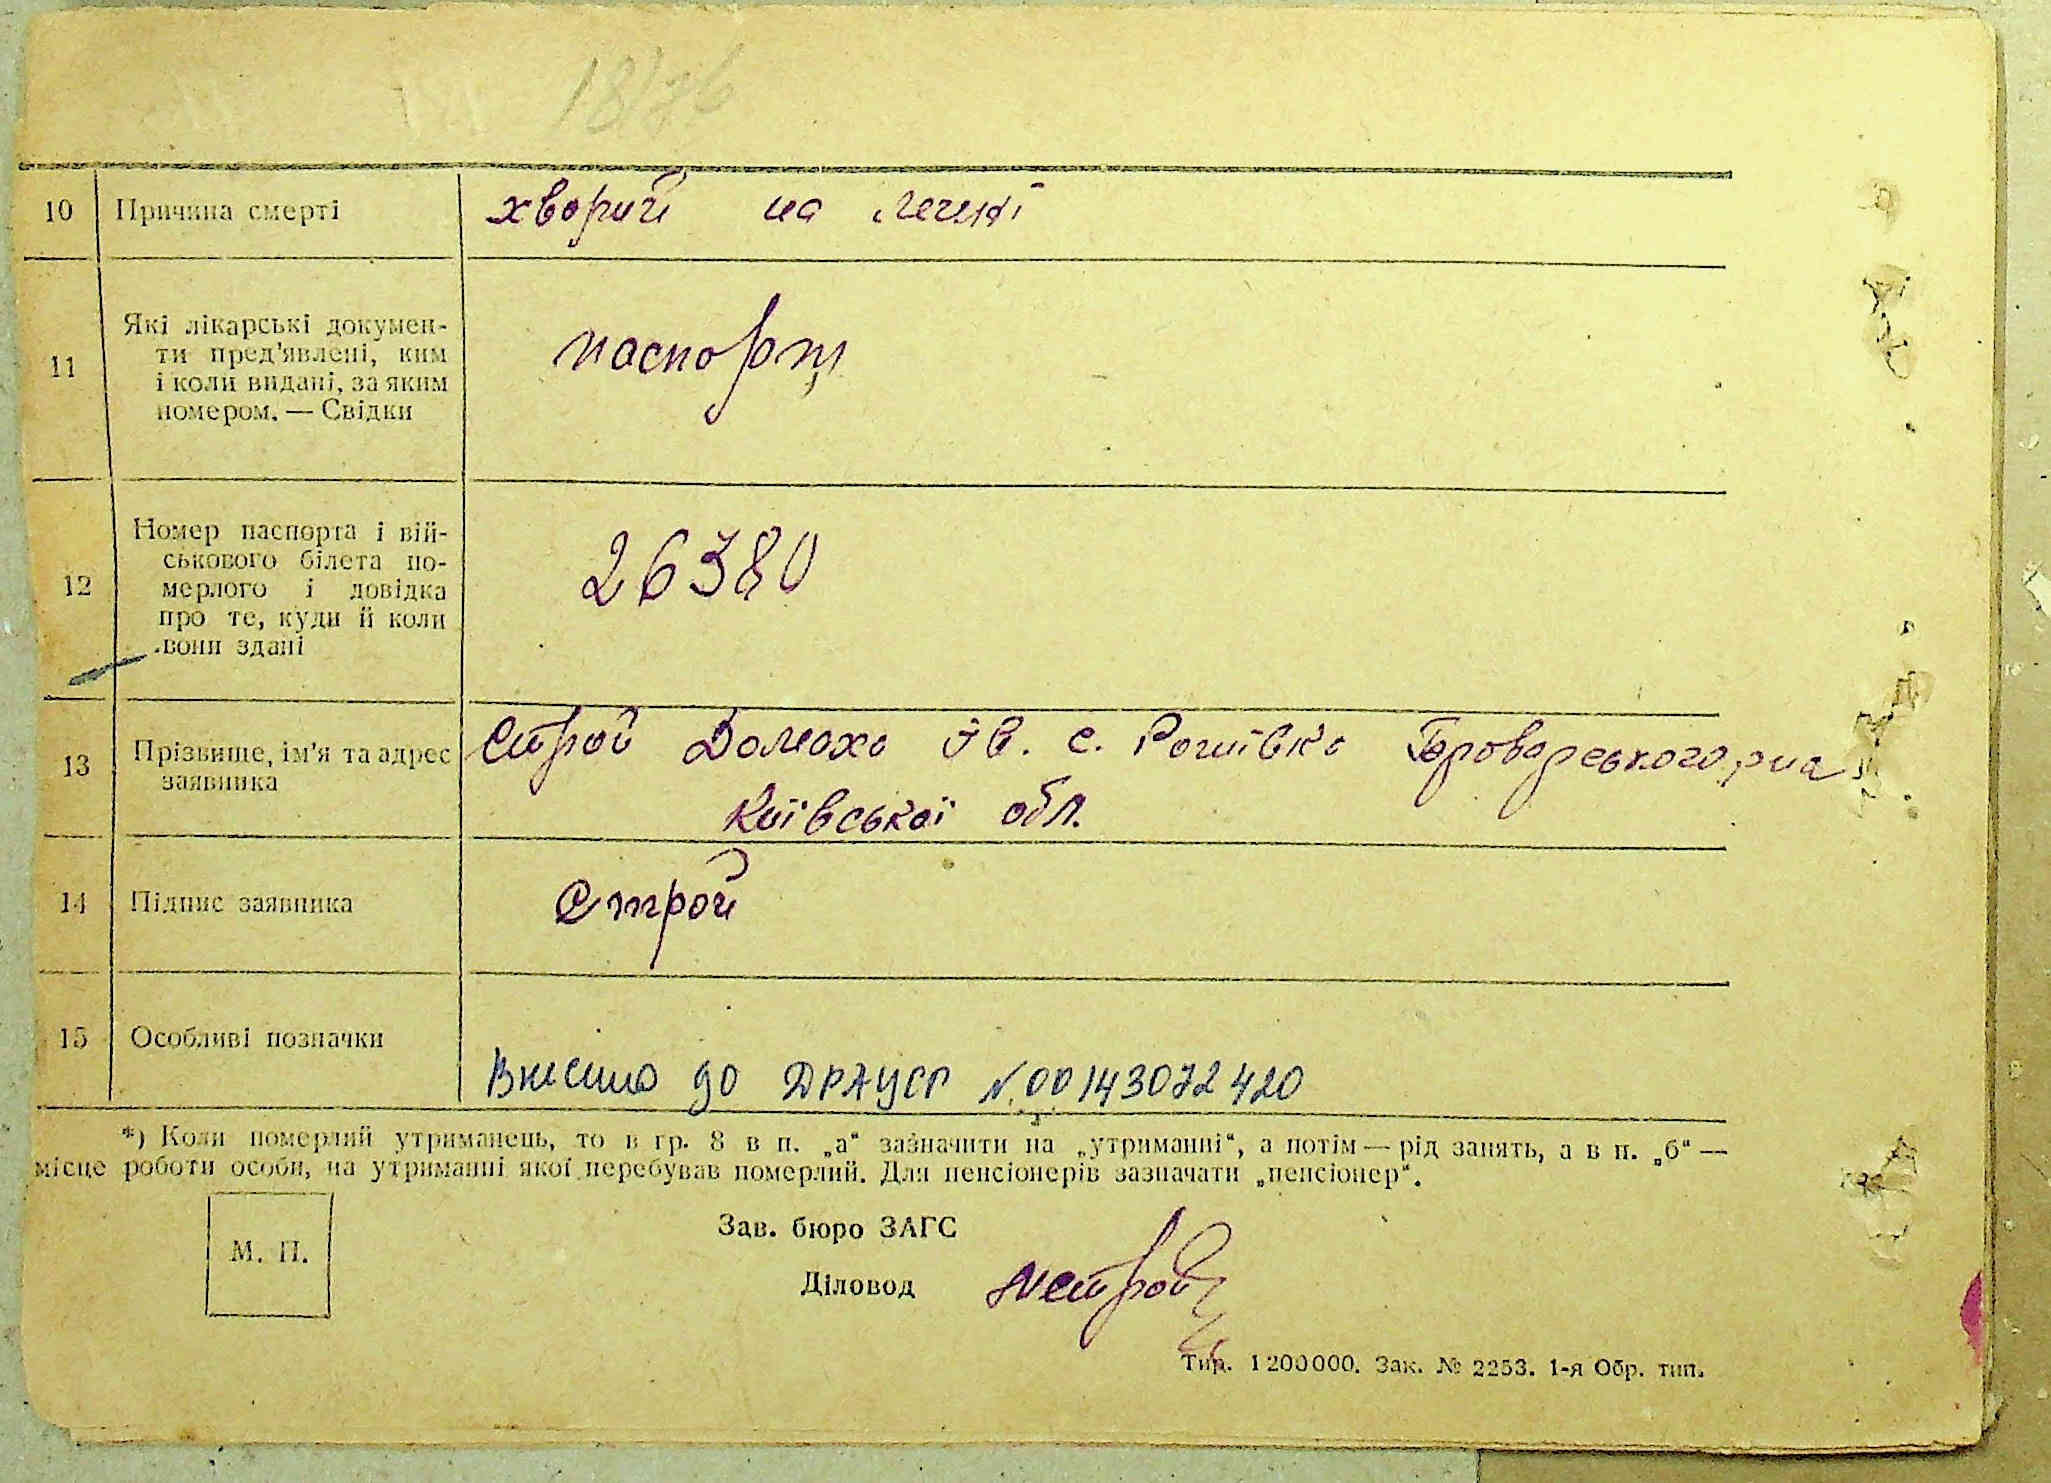 18/76
10 Причина смерті хворий на легені
11 Які лікарські докумен-
ти пред'явлені, ким
і коли видані, за яким
номером. — Свідки
паспорт
12 Номер паспорта і вій-
ськового білета по-
мерлого і довідка
про те, куди й коли
вони здані
26380
13 Прізвище, ім'я та адрес
заявника
Строй Ів. с. Рогнівка Броварського р-на
Київської обл.
14 Підпис заявника Строй
15 Особливі позначки
Внесено до ДРАЦСГ N 00143072420
*) Коли померлий утриманець, то в гр. 8 в п. „а“ зазначити на „утриманні“, а потім — рід занять, а в п. „б“ —
місце роботи особи, на утриманні якої перебував померлий. Для пенсіонерів зазначати „пенсіонер“.
М. П.
Зав. бюро ЗАГС
Діловод
Тир. 1200000. Зак. № 2253. 1-я Обр. тип.